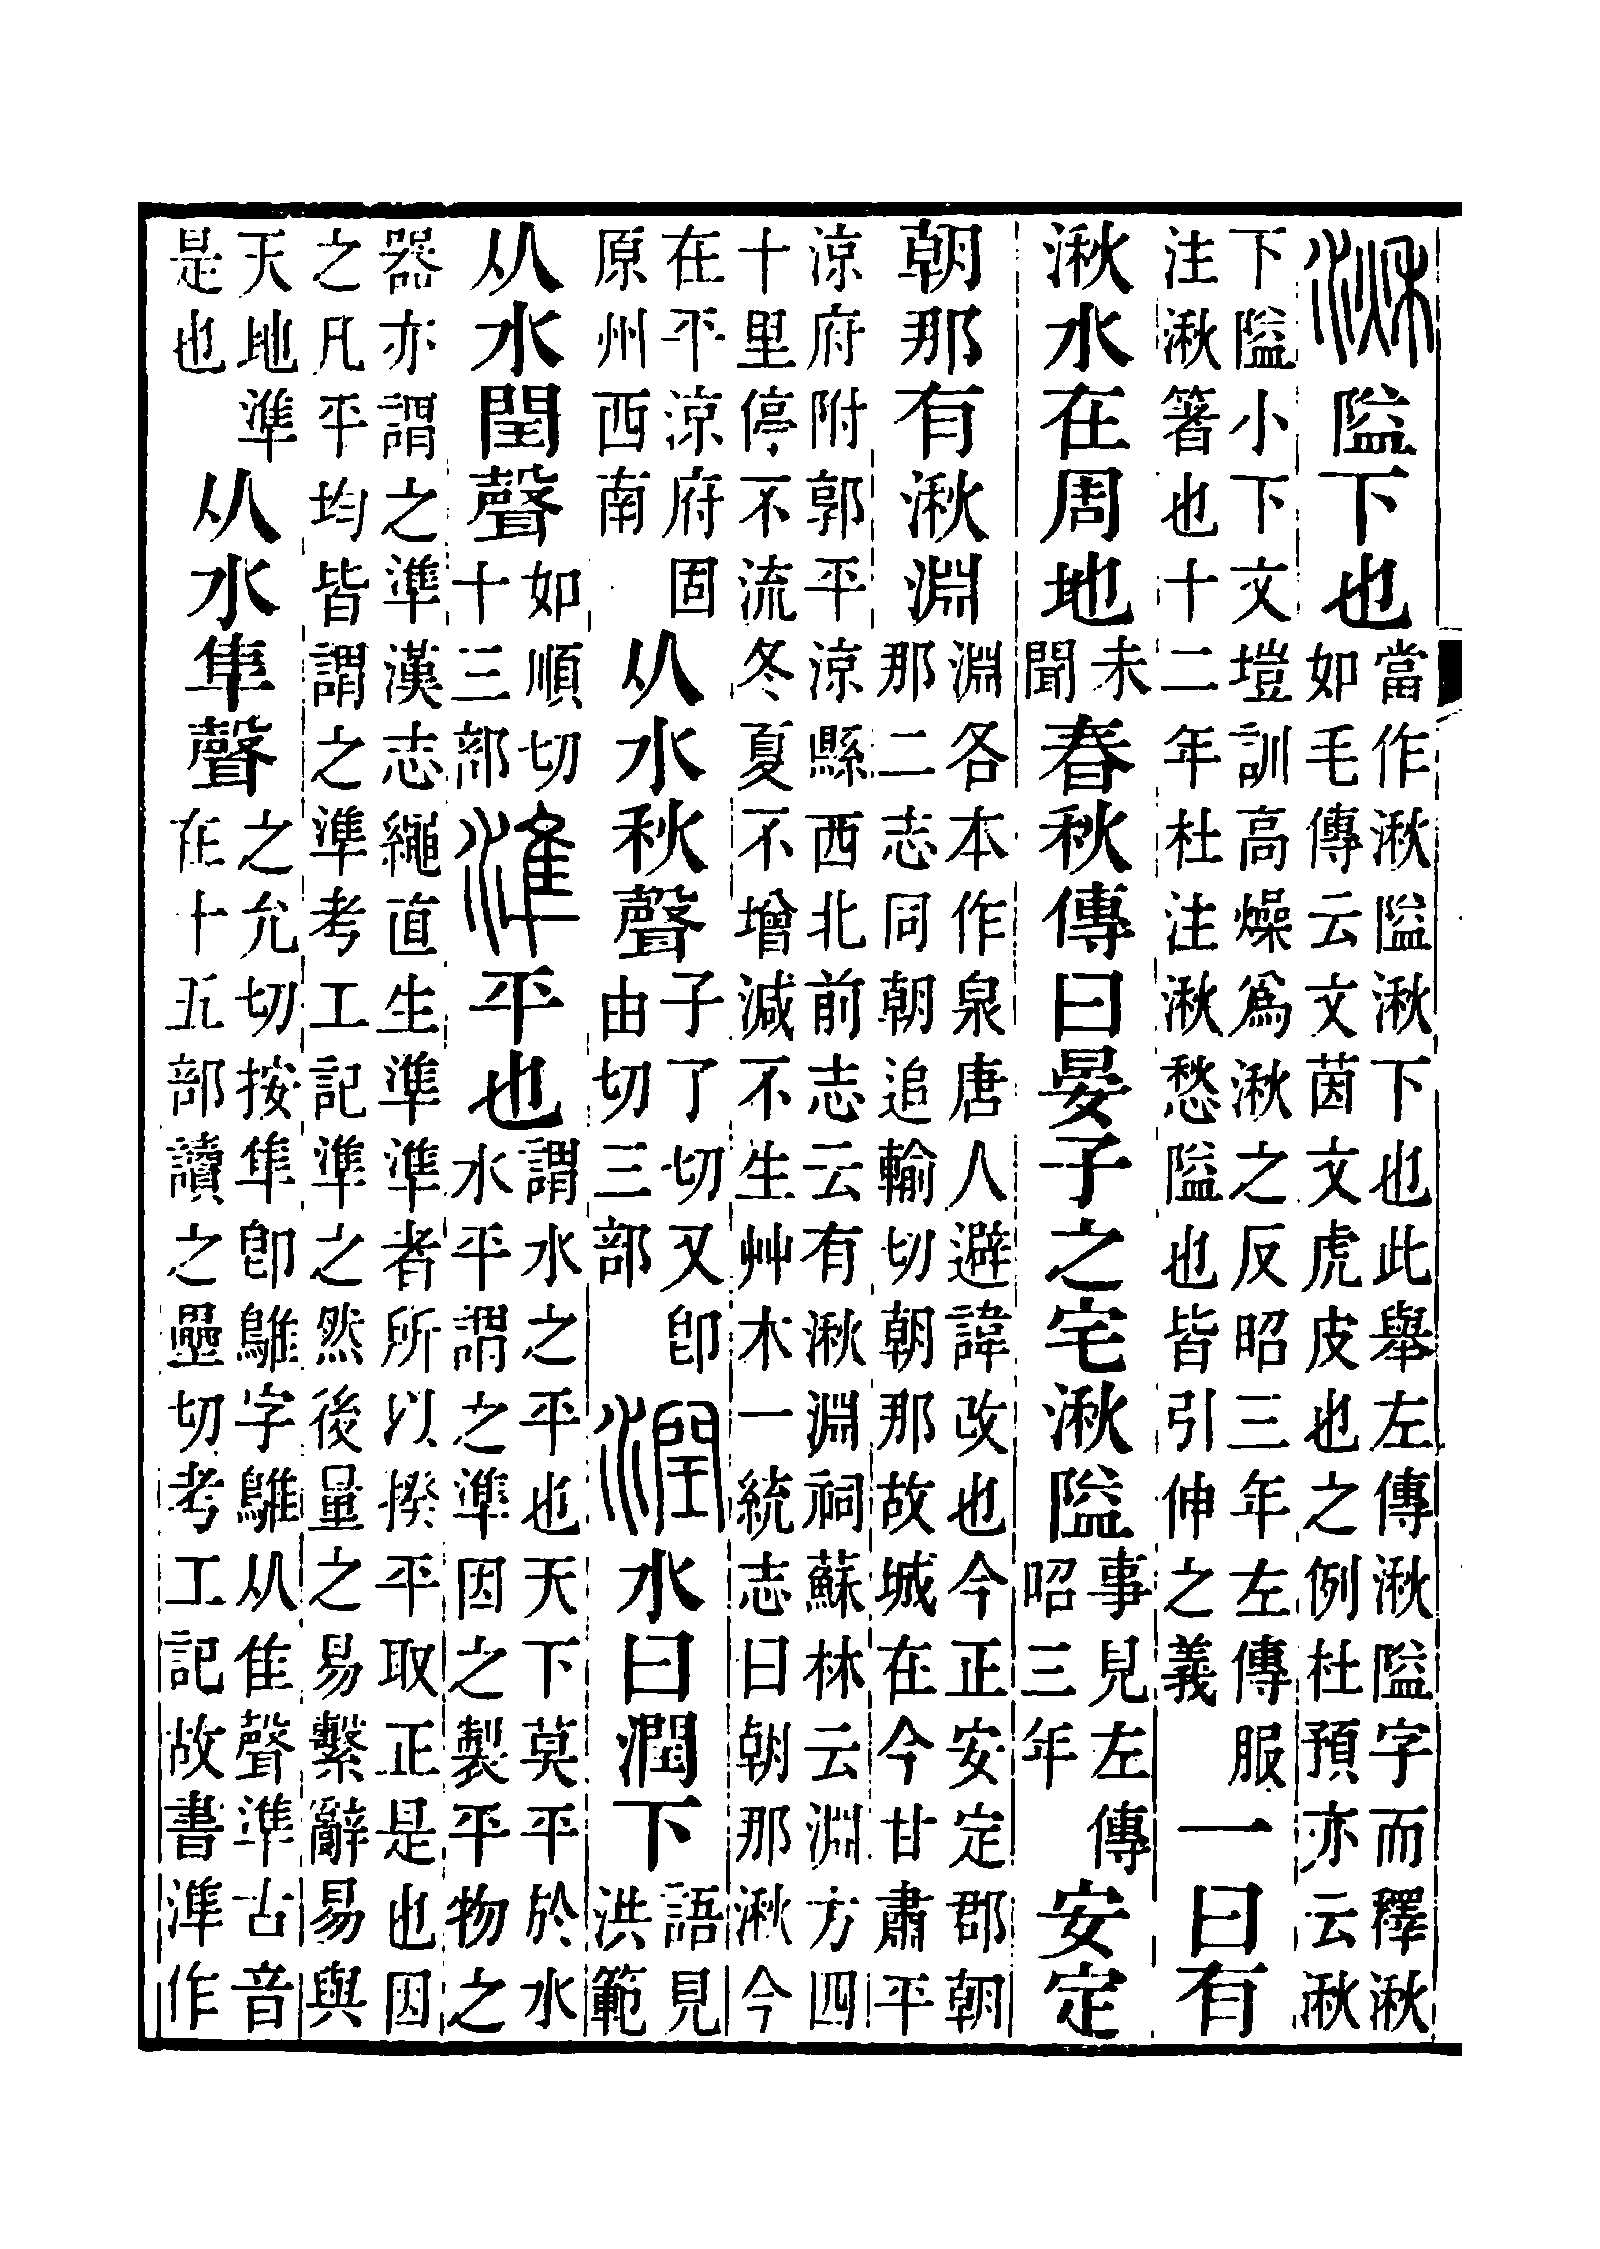 湫隘下也當作湫隘湫下也此舉左傳湫隘字而釋湫如毛傳云文茵文虎皮也之例杜預亦云湫
下隘小下文塏訓高燥爲湫之反昭三年左傳服注湫箸也十二年杜注湫愁隘也皆引伸之義一曰有
湫水在周地未聞春秋傳曰晏子之宅湫隘事見左傳昭三年安定
朝那有湫淵淵各本作泉唐人避諱改也今正安定郡朝那二志同朝追輸切朝那故城在今甘肅平
涼府附郭平涼縣西北前志云有湫淵祠蘇林云淵方四十里停不流冬夏不增減不生艸木一統志曰朝那湫今
在平涼府固原州西南从水秋聲子了切又卽由切三部潤水曰潤下語見洪範
从水閏聲如順切十三部準平也謂水之平也天下莫平於水水平謂之準因之製平物之
器亦謂之準漢志繩直生準準者所以揆平取正是也因之凡平均皆謂之準考工記準之然後量之易繫辭易與
天地準是也从水隼聲之允切按隼卽鵻字鵻从隹聲準古音在十五部讀之壘切考工記故書準作